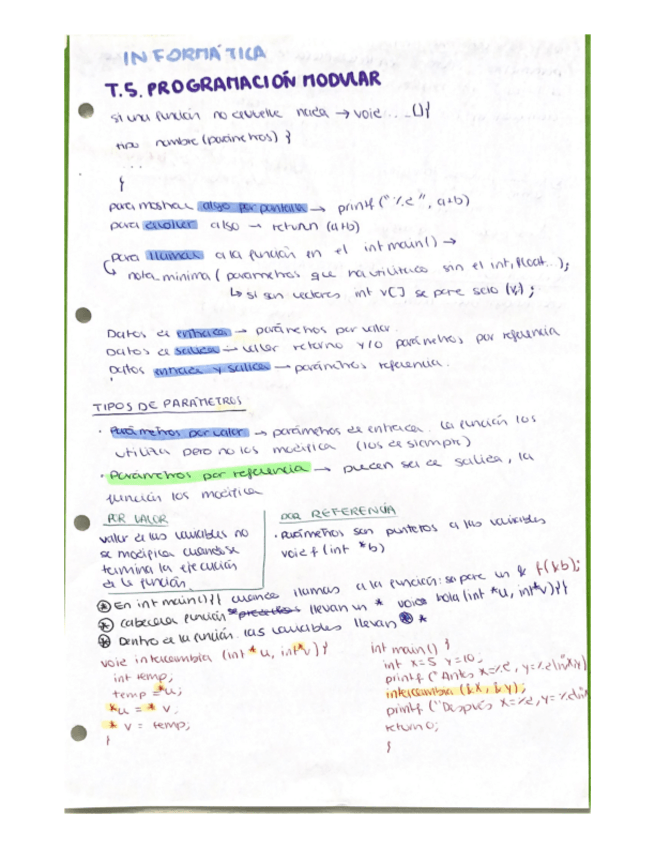 INFORMÁTICA
T.5. PROGRAMACIÓN MODULAR
si una función no devuelve nada → void ... _(){
tipo nombre (parámetros) }
...
{
para mostrar algo por pantalla → printf ("%d", a+b)
para devolver algo → return (a+b)
para llamar a la función en el int main() →
nota_minima ( parámetros que ha utilizado sin el int, float...);
↳ si son vectores int v[] se pone solo (v);
Datos de entrada → parámetros por valor.
Datos de salida → valor retorno y/o parámetros por referencia
Datos entrada y salida → parámetros referencia.
TIPOS DE PARÁMETROS
· Parámetros por valor → parámetros de entrada. La función los
utiliza pero no los modifica (los de siempre)
· Parámetros por referencia → pueden ser de salida, la
función los modifica
POR VALOR
valor de las variables no
se modifica cuando se
termina la ejecución
de la función.
POR REFERENCIA
· Parámetros son punteros a las variables
void f (int *b)
⊛ En int main(){} cuando llamas a la función: se pone un & f(&b);
⊛ Cabecera función llevan un * void hola (int *u, int *v){}
⊛ Dentro de la función las variables llevan *
void intercambia (int *u, int *v) }
int temp;
temp = *u;
*u = * v;
* v = temp;
}
int main() {
int x=5 y=10;
printf ("Antes x=%d, y=%d\n" x,y)
intercambia (&x, &y);
printf ("Después x=%d, y=%d\n"
return 0;
}